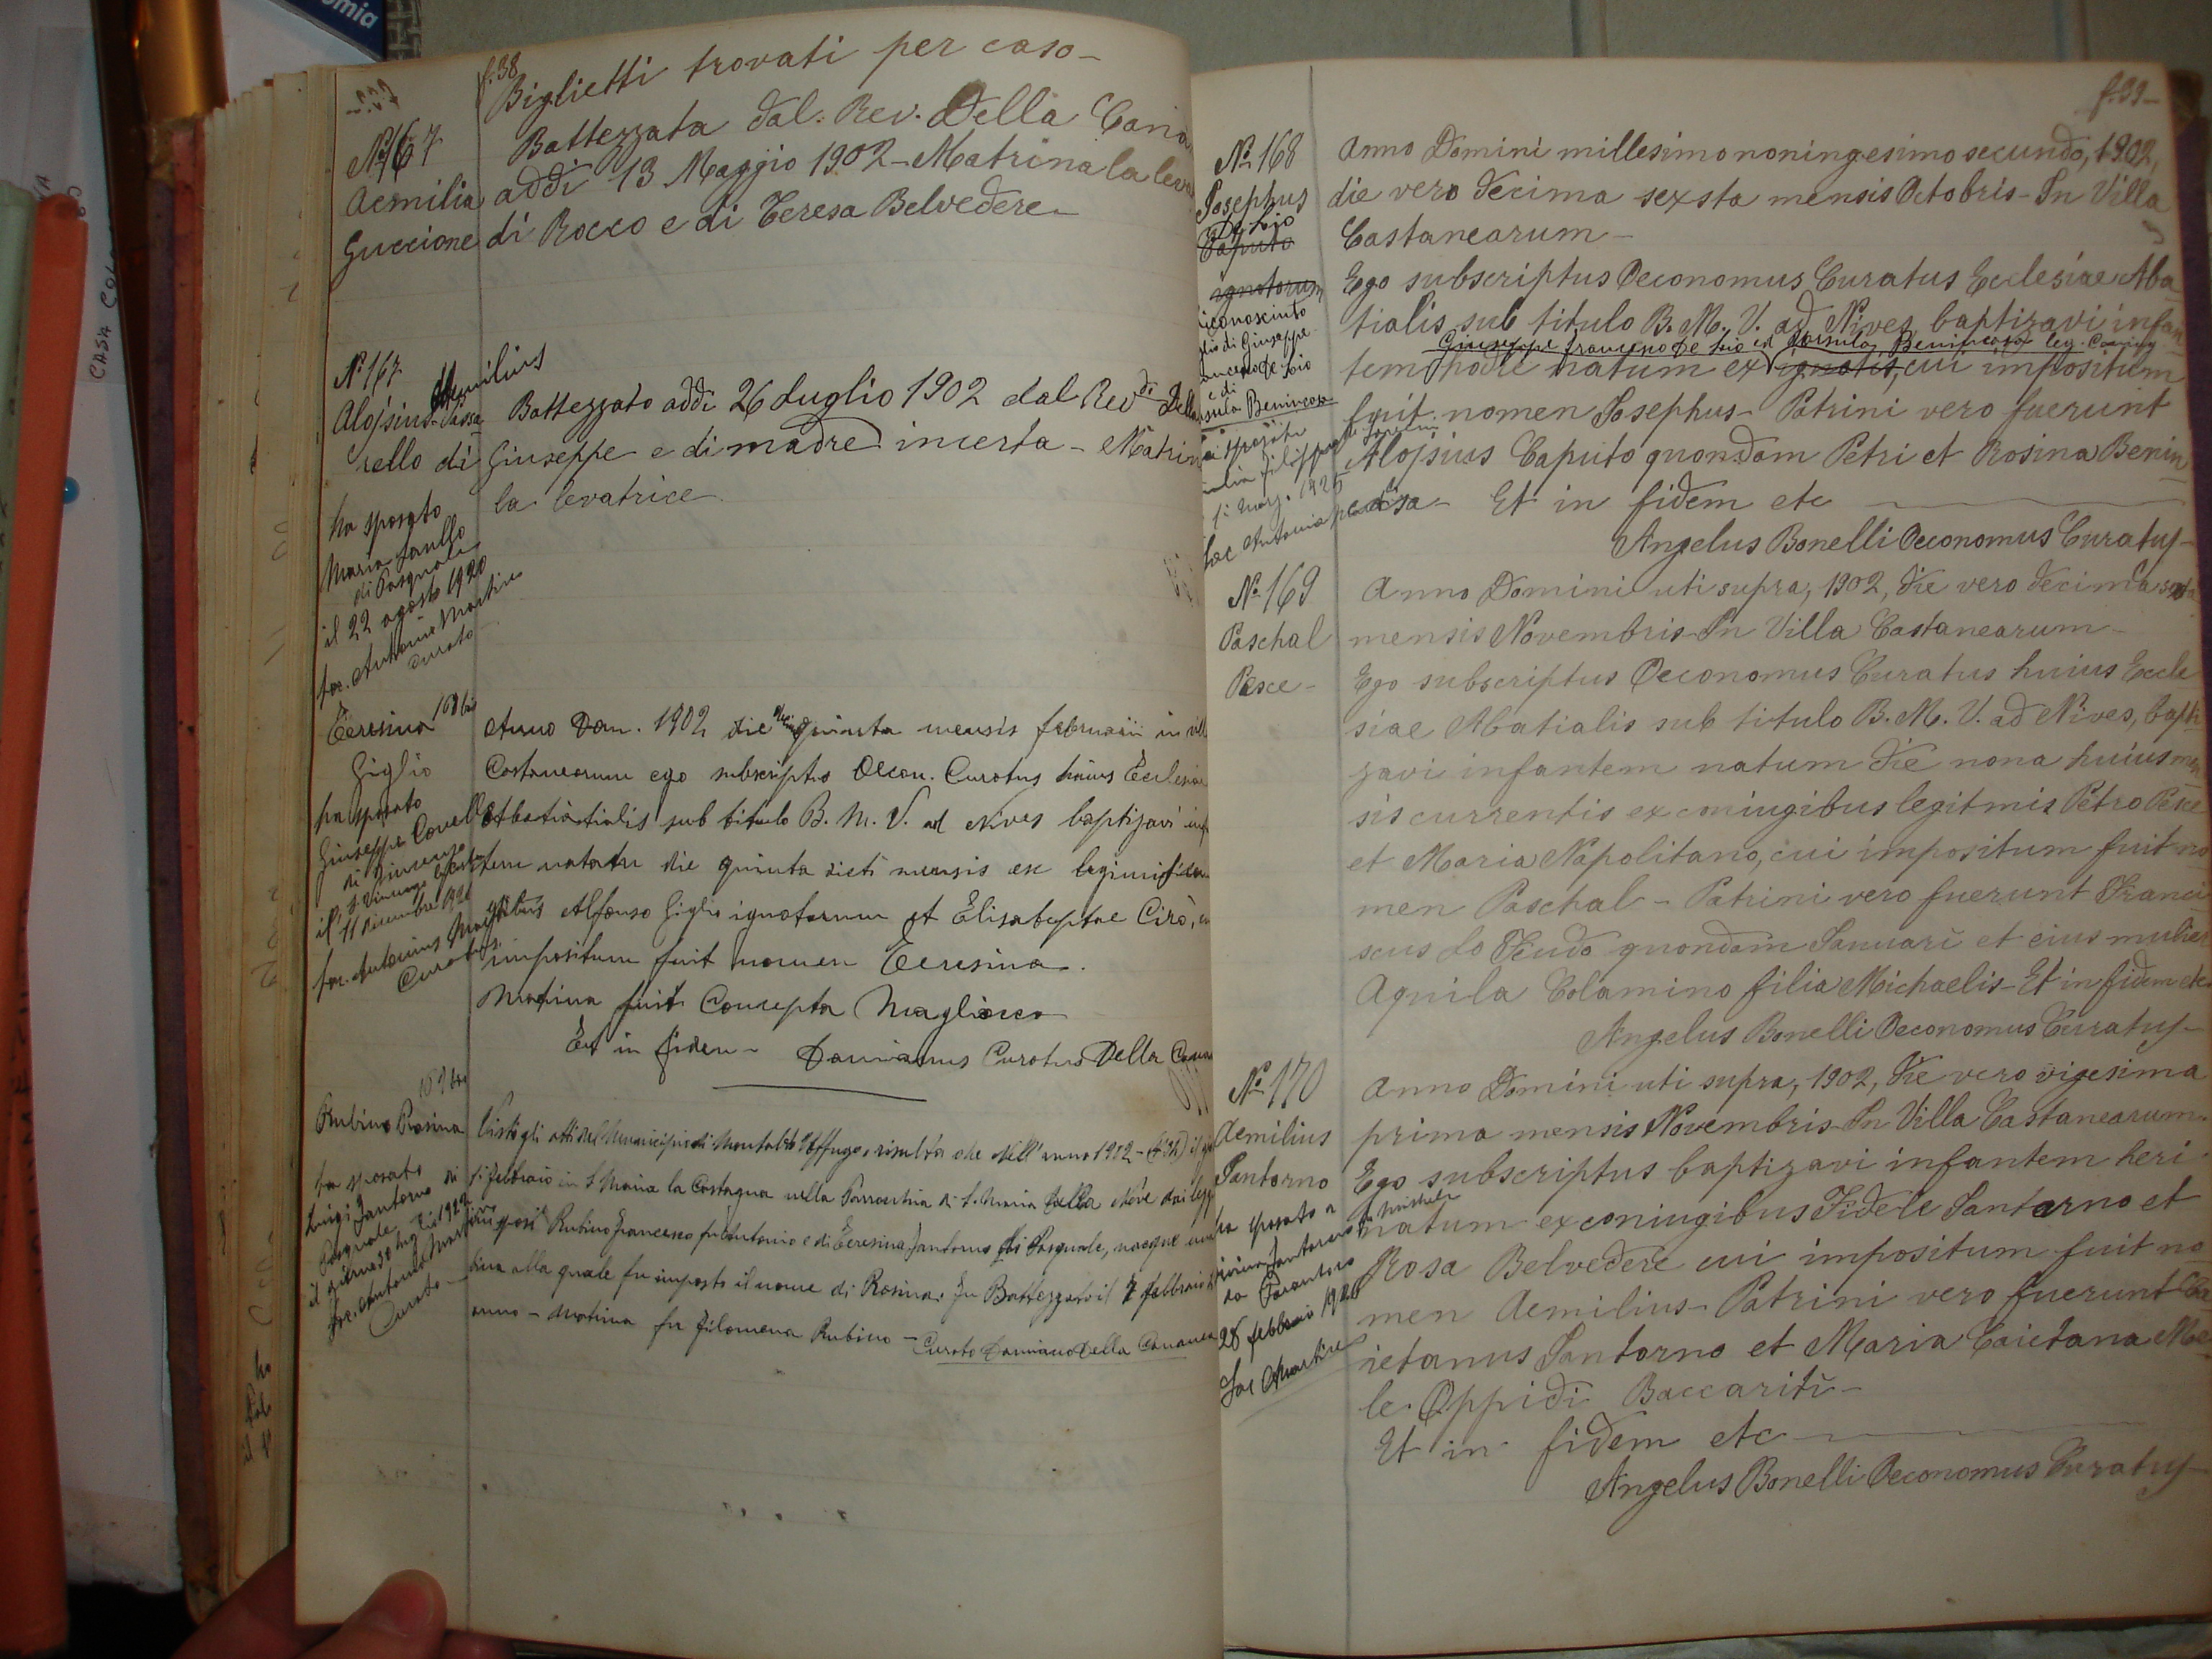 f. 38
Biglietti trovati per caso -
Nº 167
Aemilia
Guccione
Battezzata dal Rev. Della Cana
addì 13 Maggio 1902 - Matrina la leva
di Rocco e di Teresa Belvedere -
Nº 167
Aemilius
Alojsius
rello di
Battezzato addì 26 Luglio 1902 dal Revdi Della
Giuseppe e di madre incerta - Matrin
la levatrice
ha sposato
Maria
di Pasquale
il 22 agosto 1920
sac. Antonio Martire
Curato
Teresina
Giglio
ha sposato
Giuseppe
di Vincenzo
il 11 Dicembre
sac. Antonius
Curatus
Anno Dom. 1902 die quinta mensis februarii in vill
Castanearum ego subscriptus Oecon. Curatus huius Ecclesiae
sub titulo B. M. V. ad Nives baptizavi inf
tem natam die quinta dicti mensis ex
Alfonso Giglio ignotorum et Elisabeptae Cirò,
impositum fuit nomen Teresina.
Matrina fuit Concepta Magliocco
Et in fidem - Damianus Curatus Della Cana
Rubino Rosina
ha sposato
Luigi Santorno di
Pasquale
il giorno 30 1922
sac. Antonio Martire
Curato -
Visto gli atti del Municipio di Montalto Uffugo, risulta che nell'anno 1902 -
di febbraio in S. Maria la Castagna nella Parrocchia di S. Maria della Neve dai
Rubino Francesco fu Antonio e di Teresina Santorno di Pasquale, nacque una
bina alla quale fu imposto il nome di Rosina. Fu Battezzato il 7 febbraio
anno - Matrina fu Filomena Rubino -
Curato Damiano Della Cananea
f. 39 -
Nº 168
Josephus
De Lio
Caputo
ignotorum
riconosciuto
glio di Giuseppe
ancesco De Lio
e di
sula Benincasa
Anno Domini millesimo noningesimo secundo, 1902,
die vero decima sexsta mensis Octobris - In Villa
Castanearum -
Ego subscriptus Oeconomus Curatus Ecclesiae Aba
tialis sub titulo B. M. V. ad Nives baptizavi infan
Giuseppe Francesco De Lio et Ursula Benincasa leg. Coniug
tem hodie natum ex ignotis, cui impositum
fuit nomen Josephus - Patrini vero fuerunt
Alojsius Caputo quondam Petri et Rosina Benin
casa - Et in fidem etc
Angelus Bonelli Oeconomus Curatus -
Nº 169
Paschal
Pesce -
Anno Domini uti supra, 1902, die vero decima
mensis Novembris - In Villa Castanearum -
Ego subscriptus Oeconomus Curatus huius Eccle
siae Abatialis sub titulo B. M. V. ad Nives, bapti
zavi infantem natum die nona huius men
sis currentis ex coniugibus legitmis Petro Pesce
et Maria Napolitano, cui impositum fuit no
men Paschal - Patrini vero fuerunt Franci
scus Lo Feudo quondam Januari et eius mulier
Aquila Colamino filia Michaelis - Et in fidem etc
Angelus Bonelli Oeconomus Curatus -
Nº 170
Aemilius
Santorno
ha sposato a
Santorno
da
28 febbraio 1926
Sac Martire
Anno Domini uti supra, 1902, die vero vigesima
prima mensis Novembris - In Villa Castanearum -
Ego subscriptus baptizavi infantem heri
di Michele
natum ex coniugibus Fidele Santorno et
Rosa Belvedere cui impositum fuit no
men Aemilius - Patrini vero fuerunt Ca
ietanus Santorno et Maria Caietana Me
le Oppidi Baccariti -
Et in fidem etc
Angelus Bonelli Oeconomus Curatus -